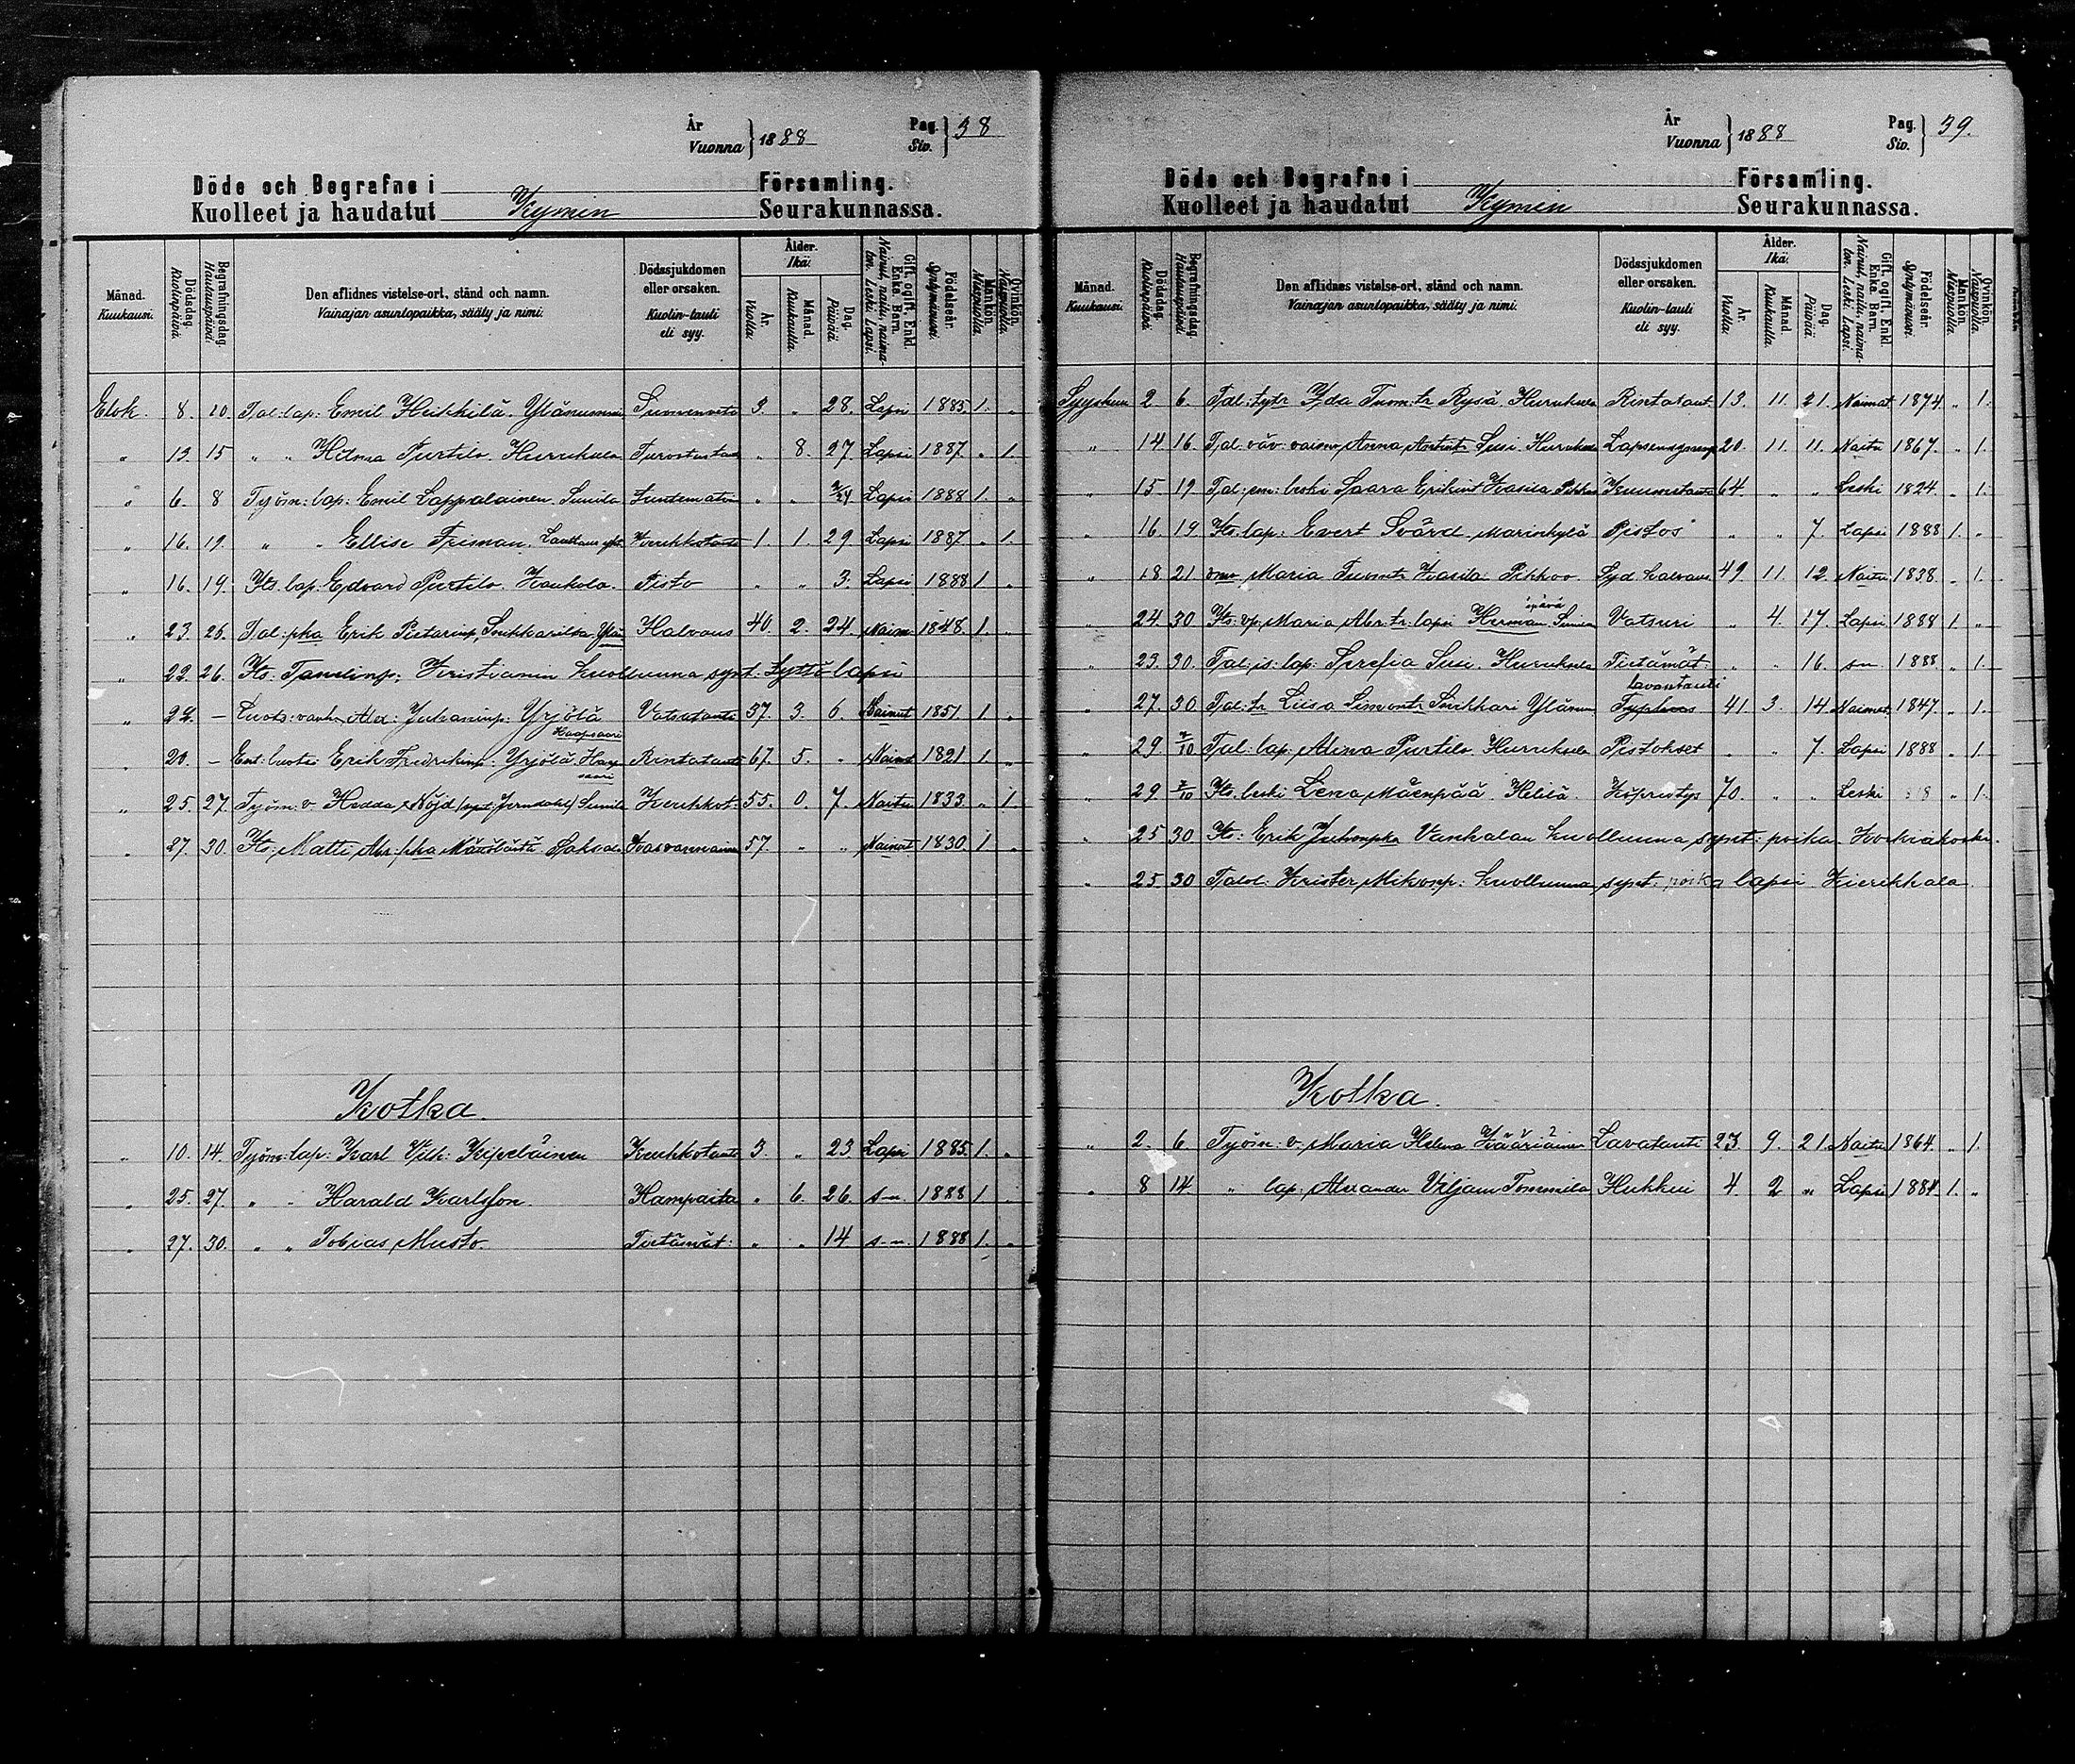 År
Vuonna } 1888
Pag.
Siv. } 38
Döde och Begrafne i Församling.
Kuolleet ja haudatut Kymin Seurakunnassa.
Månad. Kuukausi.
Dödsdag. Kuolinpäivä.
Begrafningsdag. Hautauspäivä.
Den aflidnes vistelse-ort, stånd och namn.
Vainajan asuntopaikka, sääty ja nimi.
Dödssjukdomen eller orsaken.
Kuolin-tauti eli syy.
Ålder. Ikä.
År. Vuotta.
Månad. Kuukautta.
Dag. Päivää.
Gift, ogift, Enkl. Enka. Barn.
Nainut, naitu, naimaton. Leski. Lapsi.
Födelseår. Syntymävuosi.
Mankön. Miespuolia.
Qvinkön. Naispuolia.
Elok. 8. 10. Tal: lap: Emil Heikkilä. Ylänummi 3. " 28. Lapsi 1885 1. "
" 13. 15 " " Hilma Purtilo Hurukela " 8. 27. Lapsi 1887 " 1.
" 6. 8 Työm: lap: Emil Lappalainen. Sunila " " Lapsi 1888 1. "
" 16. 19. " " Ellise Friman. Kurkkutauti 1. 1. 29 Lapsi 1887 " 1.
" 16. 19. Its. lap: Edvard Purtilo. Kaukola. Pisto " " 3. Lapsi 1888 1 "
" 23. 26. Tal: pka Erik Pietarinp. Halvaus 40. 2. 24. Naim 1848. 1. "
" 22. 26. Its. Kristianin kuolluna synt: tyttö lapsi
" 22. — Luots: vanh. Alex: Juhaninp: Yrjölä Haapasaari Vatsatauti 37. 3. 6. Nainut 1851. 1 "
" 20. — Ent: luotsi Erik Fredrikinp: Yrjölä Haapasaari Rintatauti 67. 5. " Nainut 1821 1 "
" 25. 27. Työm: v. Hedda Nöjd Sunila Kurkkut: 55. 0. 7. Naitu 1833 " 1
" 27. 30. Its: Matti Abr: pka 57. " " Nainut 1830. 1 "
Kotka.
" 10. 14. Työm: lap: Karl Vilh: Kipeläinen Kurkkutauti 3. " 23 Lapsi 1885. 1. "
" 25. 27. " " Harald Karlsson. Hampaita " 6. 26. s-n 1888 1 "
" 27. 30. " " Tobias Musto. Tietämät: " " 14 s-n 1888 1. "
År
Vuonna } 1888
Pag.
Siv. } 39.
Döde och Begrafne i Församling.
Kuolleet ja haudatut Kymin Seurakunnassa.
Månad. Kuukausi.
Dödsdag. Kuolinpäivä.
Begrafningsdag. Hautauspäivä.
Den aflidnes vistelse-ort, stånd och namn.
Vainajan asuntopaikka, sääty ja nimi.
Dödssjukdomen eller orsaken.
Kuolin-tauti eli syy.
Ålder. Ikä.
År. Vuotta.
Månad. Kuukautta.
Dag. Päivää.
Gift, ogift, Enkl. Enka. Barn.
Nainut, naitu, naimaton. Leski. Lapsi.
Födelseår. Syntymävuosi.
Mankön. Miespuolia.
Qvinkön. Naispuolia.
Syyskuu 2 6. Tal: tytr Ida Tuom: tr Rysä. Hurukela Rintataut. 13. 11. 21. Naimat. 1874. " 1.
" 14 16. Tal. väv: vaimo Anna Susi. Hurukela 20. 11. 11. Naitu 1867. " 1.
" 15. 19 Tal: em: leski Saara Erikint Kasila 64. " " Leski 1824. " 1.
" 16. 19 Its. lap: Evert Svärd. Marinkylä Pistos " " 7. Lapsi 1888 1. "
" 18 21 Maria Tuomtr Kasila Pihkoo 49. 11. 12. Naitu 1838. " 1.
" 24. 30 Its: vp: Maria Abr: tr. lapsi Herman äpärä Vatsuri " 4. 17. Lapsi 1888 1. "
" 23. 30. Tal: is: lap: Serefia Susi. Hurukela Tietämät. " " 16. s-n 1888 " 1.
" 27. 30 Tal: tr Liisa Simontr Suikkari Ylänum lavantauti Typhus 41 3. 14. Naimat. 1847. " 1.
" 29. 2/10 Tal: lap: Alma Purtilo Hurukela Pistokset " " 7. Lapsi 1888 " 1.
" 29. 2/10 Its. leski Lena Mäenpää. Helilä. 70. " " Leski " 1.
" 25 30 Its: Erik Juhonpka Vanhalan kuolluna synt: poika.
" 25. 30 Talol: Krister Mikonp: kuolluna synt: poika lapsi Kierikkala
Kotka.
" 2. 6 Työm: v. Maria Helena Kääriäinen Lavatauti 23. 9. 21. Naitu 1864. " 1.
" 8 14. " lap: Alexander Viljam Tommila Hukkui 4. 2 " Lapsi 1884. 1. "